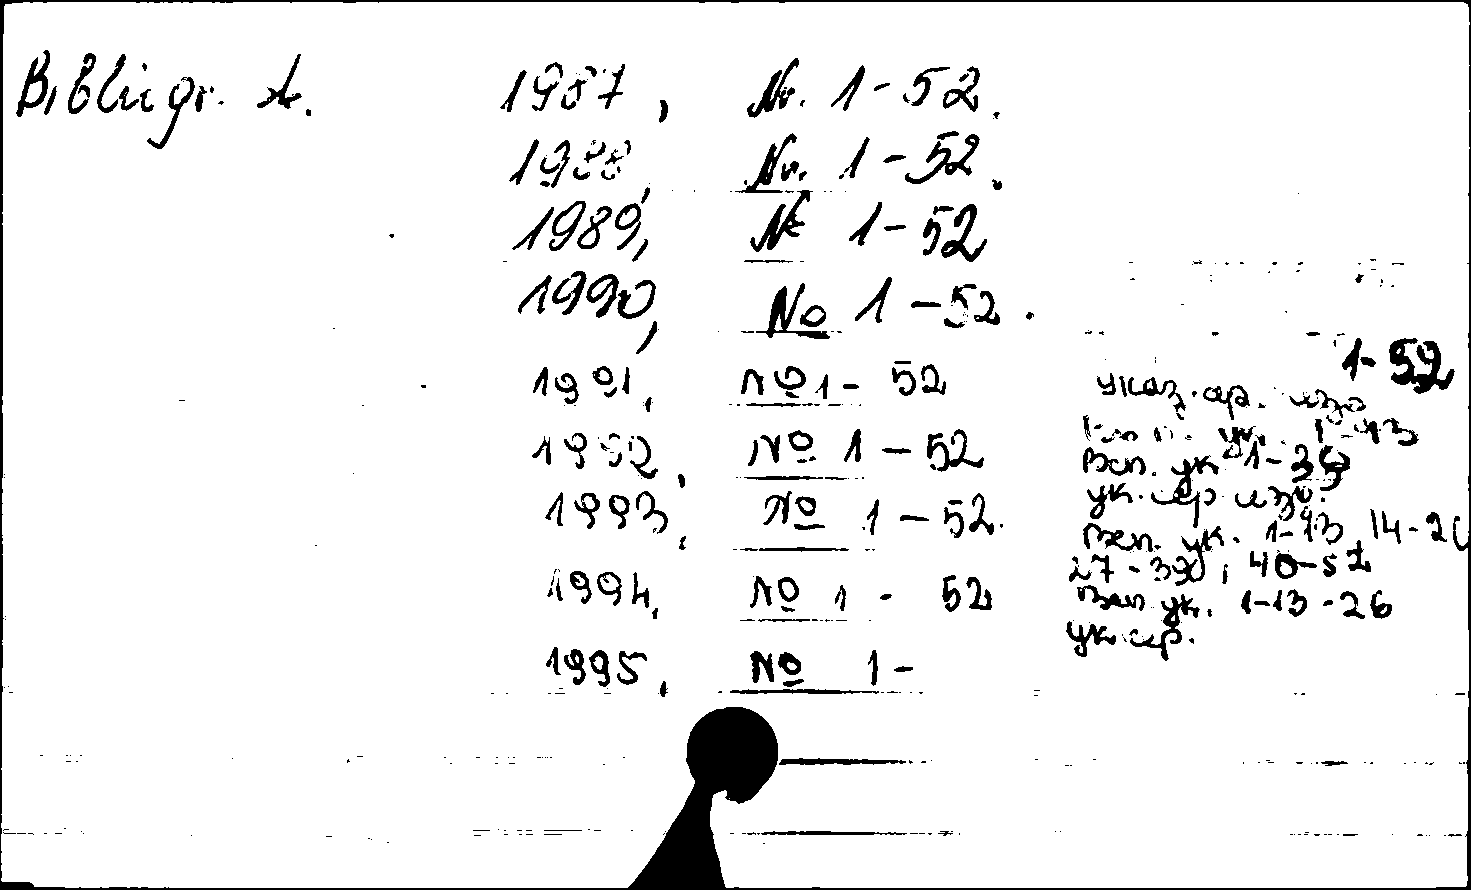 Bibliogr. A. 1987, Nr. 1-52.
1988, Nr. 1-52.
1989, № 1-52
1990, № 1-52.
1991, № 1- 52 1-52
указ. сер. изд
1992, № 1-52 ук. 1-13
Всп. ук 1-39
1993, № 1-52. ук. сер изд.
Всп. ук. 1-13, 14-26
27-39, 40-52
1994, № 1 - 52 Всп ук. 1-13-26
ук. сер.
1995, № 1-